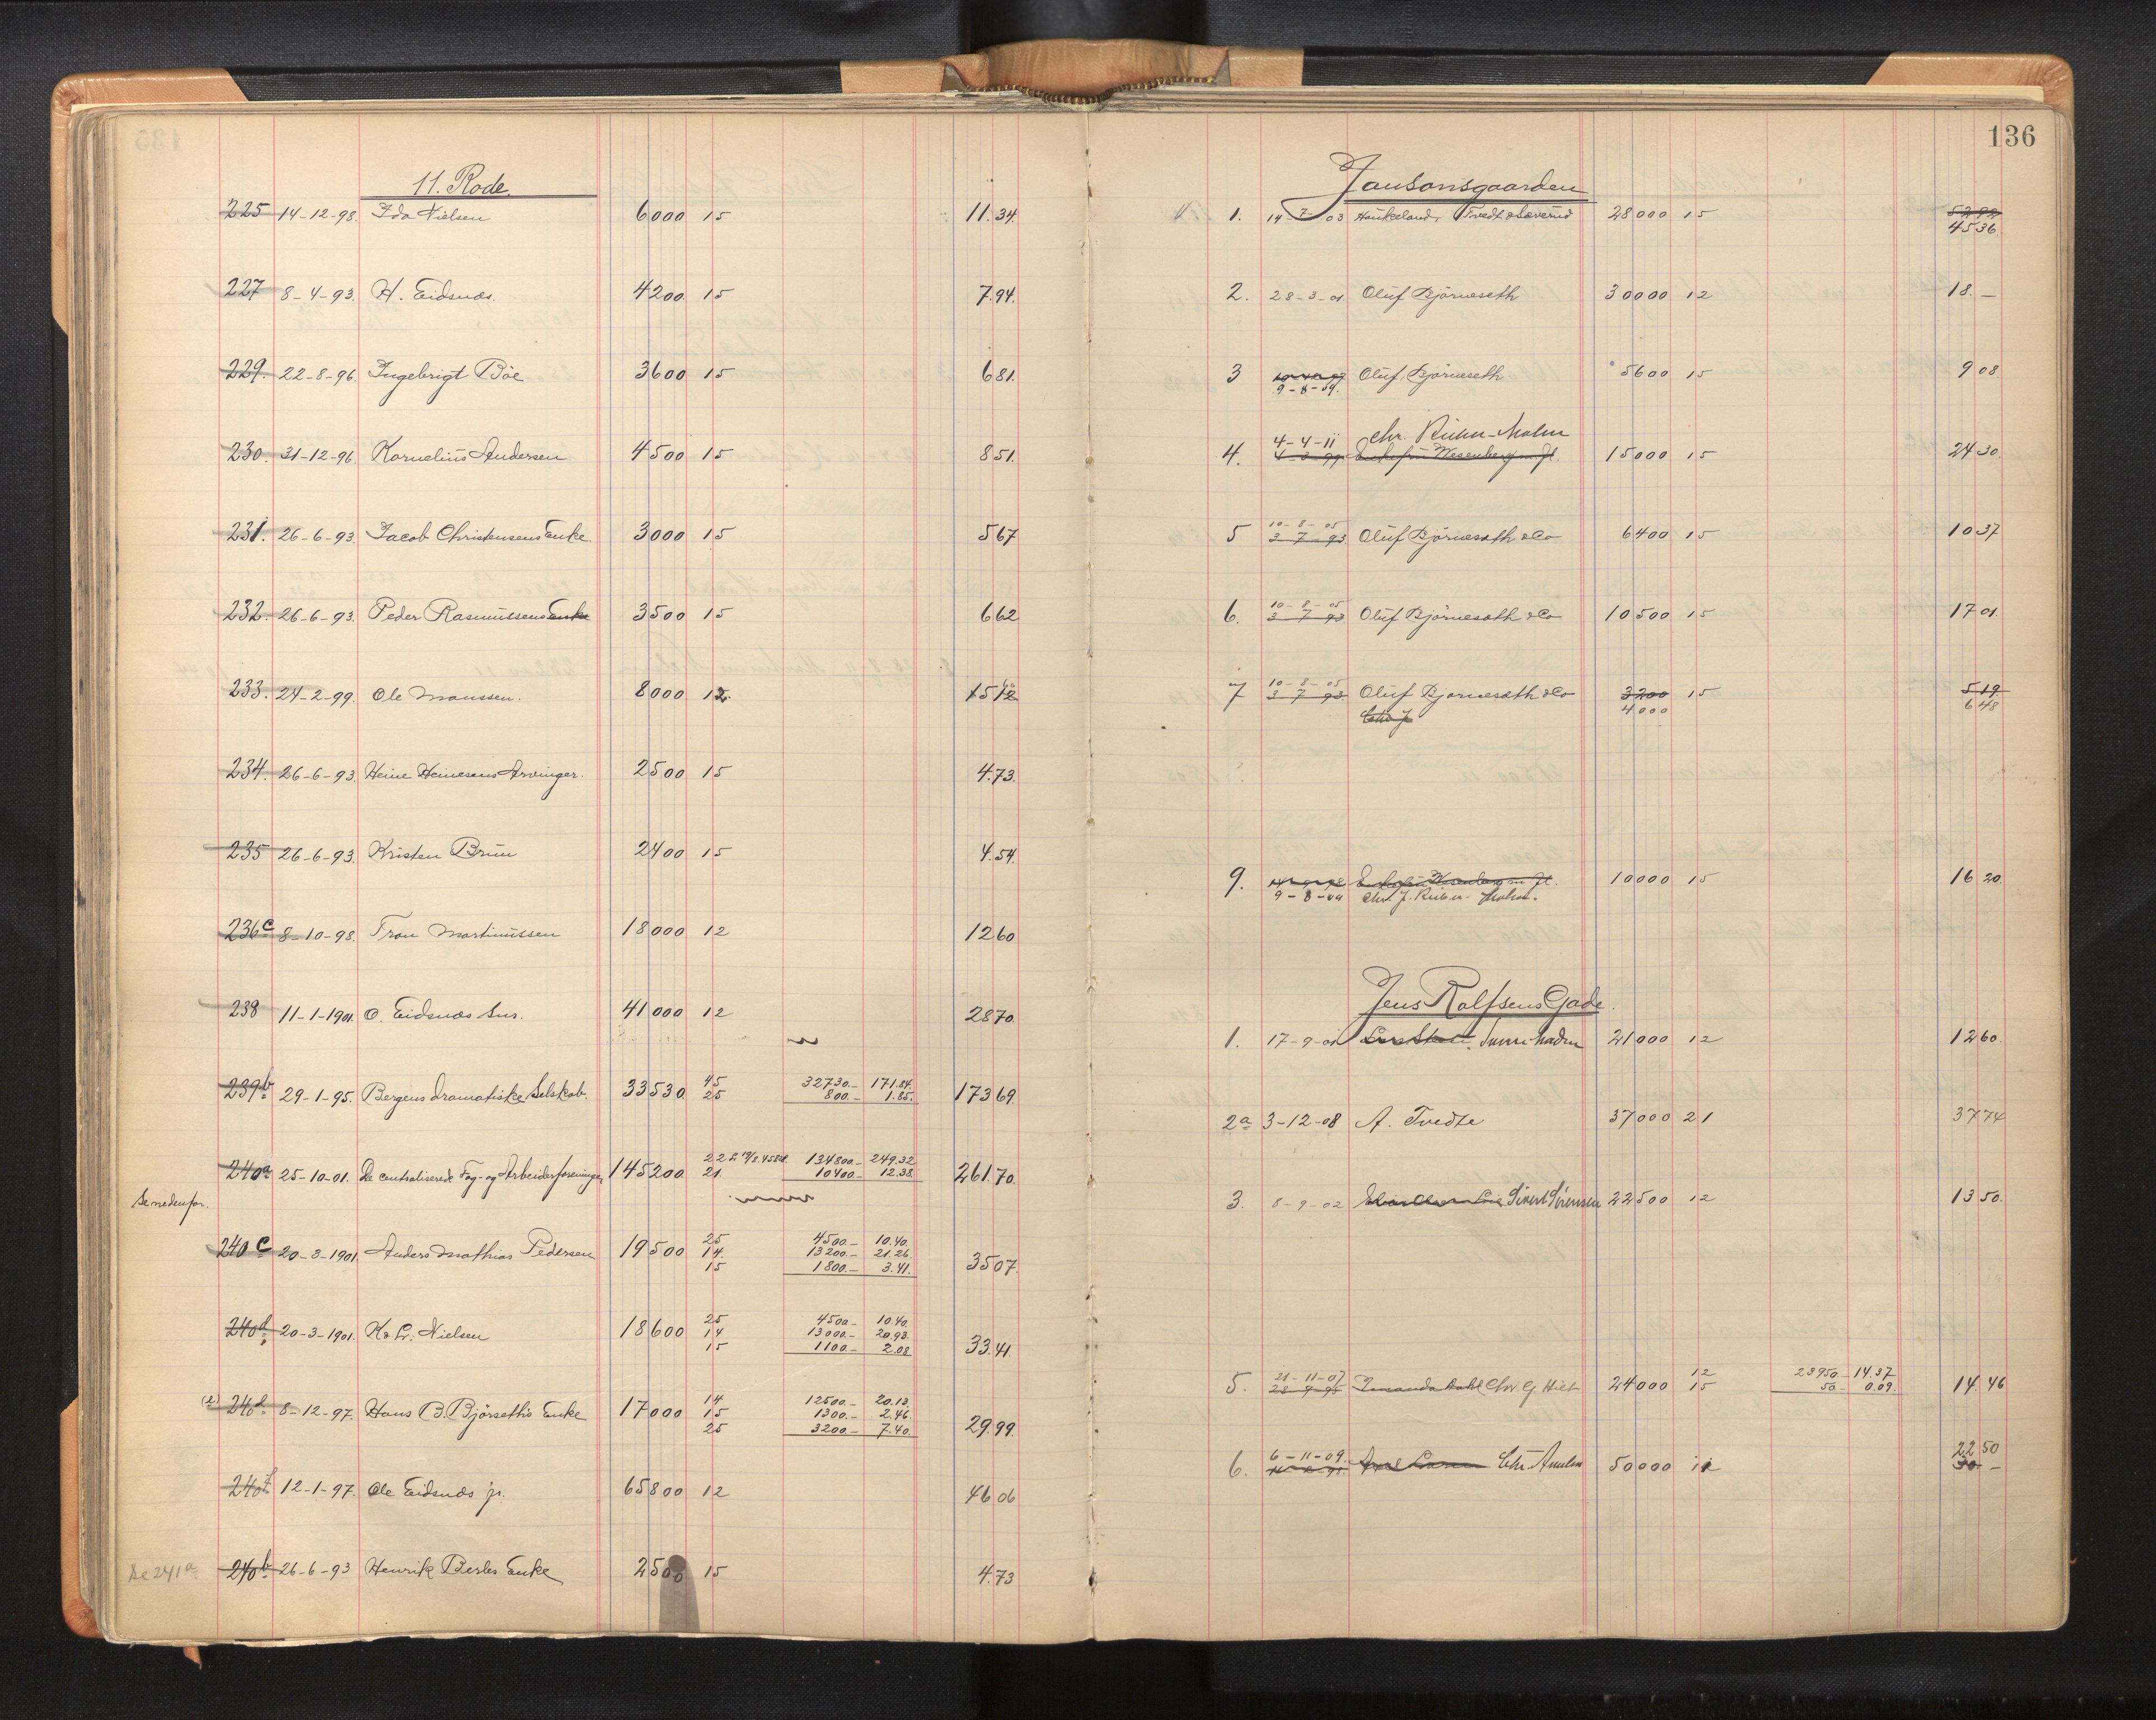 11. Rode.
225 14-12-98. Ida Nielsen 6000 15 11.34.
227 8-4-93. H. Eidsnæs. 4200 15 7.94.
229. 22-8-96. Ingebrigt Böe 3600 15 681.
230. 31-12-96. Kornelius Andersen 4500 15 851.
231. 26-6-93. Jacob Christensens Enke. 3000 15 567
232. 26-6-93. Peder Rasmussens Enke 3500 15 662
233. 24-2-99. Ole Monssen. 8000 12.
234. 26-6-93. Heine Heinesens Arvinger. 2500 15 4.73.
235 26-6-93. Kristen Brun 2400 15 4.54.
236c 8-10-98. Tron Martinussen 18000 12 1260
238 11-1-1901. O. Eidsnæs Snr. 41000 12 2870.
239b 29-1-95. Bergens dramatiske Selskab. 33530 45 32730.- 171.84. 17369.
25 800.- 1.85.
240a 25-10-01. De centraliserede Fag- og Arbeiderforeninger 145200 22 134800.- 249.32 261.70.
21. 10400.- 12.38.
Se nedenfor.
240c 20-3-1901. Anders Mathias Pedersen 19500 25 4500.- 10.40. 3507.
14. 13200.- 21.26.
15 1800.- 3.41.
240d 20-3-1901. K. L. Nielsen 18600 25 4500.- 10.40. 33.41.
14 13000.- 20.93.
15 1100.- 2.08
(2) 240d 8-12-97. Hans B. Bjørseths Enke 17000 14 12500.- 20.13. 29.99.
15 1300.- 2.46.
25 3200.- 7.40.
240f 12-1-97. Ole Eidsnæs jr. 65800 12 4606
Se 241a. 240b 26-6-93 Henrik Berles Enke 2500 15 4.73
136
Jansonsgaarden
1. 14-7-03 Haukeland, Tvedt & Sæverud 28000 15 5292
4536.
2. 28-3-01. Oluf Bjørneseth 30000 12 18.-
3 Oluf Bjørneseth 5600 15 908
9-8-09.
4-4-11 Chr. Rieber-Mohn
4. 4-3-99. Enkefru Mesenberg m. fl. 15000 15 2430.
10-8-05
5 3-7-93. Oluf Bjørneseth & Co 6400 15 1037
10-8-05
6. 3-7-93 Oluf Bjørneseth & Co 10500 15 1701.
10-8-05
7 3-7-93 Oluf Bjørneseth & Co 3200 15 519.
4000 648
9. Enkefru Mesenberg m. fl. 10000 15 1620.
9-8-09 Chr. J. Rieber-Mohn.
Jens Rolfsens Gade.
1. 17-9-01 21000 12 1260.
2a 3-12-08 A. Tvedte 37000 21 3774
3. 8-9-02 Sivert Sørensen 22500 12 1350.
21-11-07 12 23950 14.37
5. 28-9-95 Chr. G. Hiet 24000 15 50.- 0.09. 14.46
6-11-09. 2250
6. Chr. 50000 30.-